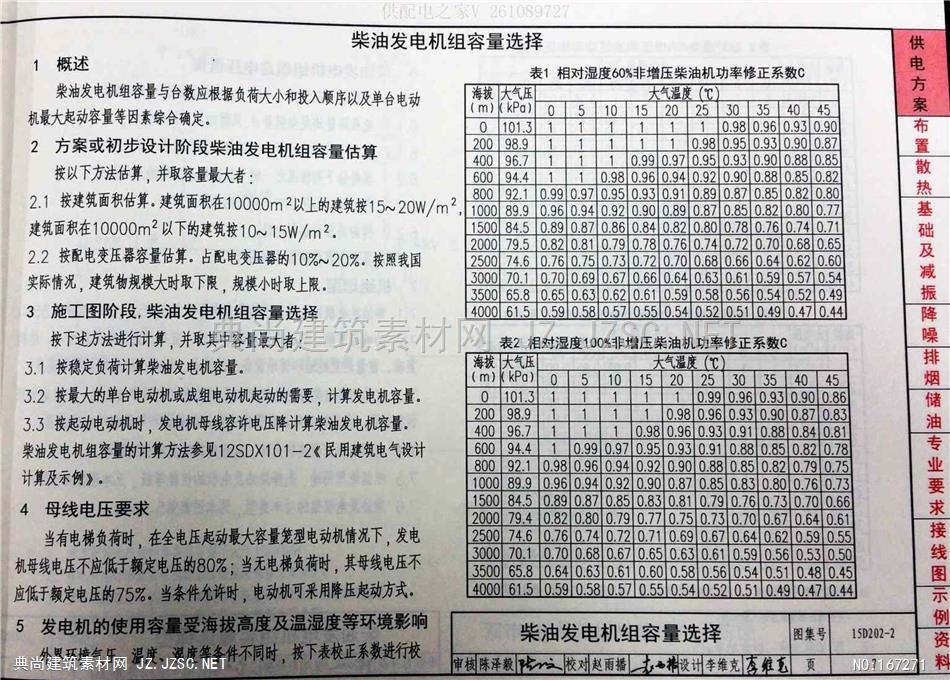 供配电之家V 261089727
柴油发电机组容量选择
1 概述
柴油发电机组容量与台数应根据负荷大小和投入顺序以及单台电动
机最大起动容量等因素综合确定。
2 方案或初步设计阶段柴油发电机组容量估算
按以下方法估算,并取容量最大者:
2.1 按建筑面积估算。建筑面积在10000m²以上的建筑按15~20W/m²,
建筑面积在10000m²以下的建筑按10~15W/m²。
2.2 按配电变压器容量估算。占配电变压器的10%~20%。按照我国
实际情况,建筑物规模大时取下限,规模小时取上限。
3 施工图阶段.柴油发电机组容量选择
按下述方法进行计算,并取其中容量最大者:
3.1 按稳定负荷计算柴油发电机容量。
3.2 按最大的单台电动机或成组电动机起动的需要,计算发电机容量。
3.3 按起动电动机时,发电机母线容许电压降计算柴油发电机容量。
柴油发电机组容量的计算方法参见12SDX101-2《民用建筑电气设计
计算及示例》。
4 母线电压要求
当有电梯负荷时,在全电压起动最大容量笼型电动机情况下,发电
机母线电压不应低于额定电压的80%;当无电梯负荷时,其母线电压不
应低于额定电压的75%。当条件允许时,电动机可采用降压起动方式。
5 发电机的使用容量受海拔高度及温湿度等环境影响
外界环境气压、温度、湿度等条件不同时,按下表校正系数进行校
表1 相对湿度60%非增压柴油机功率修正系数C
海拔 大气压 大气温度(℃)
(m) (kPa) 0 5 10 15 20 25 30 35 40 45
0 101.3 1 1 1 1 1 1 0.98 0.96 0.93 0.90
200 98.9 1 1 1 1 1 0.98 0.95 0.93 0.90 0.87
400 96.7 1 1 1 0.99 0.97 0.95 0.93 0.90 0.88 0.85
600 94.4 1 1 0.98 0.96 0.94 0.92 0.90 0.88 0.85 0.82
800 92.1 0.99 0.97 0.95 0.93 0.91 0.89 0.87 0.85 0.82 0.80
1000 89.9 0.96 0.94 0.92 0.90 0.89 0.87 0.85 0.82 0.80 0.77
1500 84.5 0.89 0.87 0.86 0.84 0.82 0.80 0.78 0.76 0.74 0.71
2000 79.5 0.82 0.81 0.79 0.78 0.76 0.74 0.72 0.70 0.68 0.65
2500 74.6 0.76 0.75 0.73 0.72 0.70 0.68 0.66 0.64 0.62 0.60
3000 70.1 0.70 0.69 0.67 0.66 0.64 0.63 0.61 0.59 0.57 0.54
3500 65.8 0.65 0.63 0.62 0.61 0.59 0.58 0.56 0.54 0.52 0.49
4000 61.5 0.59 0.58 0.57 0.55 0.54 0.52 0.51 0.49 0.47 0.44
典尚建筑素材网 JZ.JZSC.NET
表2 相对湿度100%非增压柴油机功率修正系数C
海拔 大气压 大气温度(℃)
(m) (kPa) 0 5 10 15 20 25 30 35 40 45
0 101.3 1 1 1 1 1 0.99 0.96 0.93 0.90 0.86
200 98.9 1 1 1 1 0.98 0.96 0.93 0.90 0.87 0.83
400 96.7 1 1 1 0.98 0.96 0.93 0.91 0.88 0.84 0.81
600 94.4 1 0.99 0.97 0.95 0.93 0.91 0.88 0.85 0.82 0.78
800 92.1 0.98 0.96 0.94 0.92 0.90 0.88 0.85 0.82 0.79 0.75
1000 89.9 0.96 0.94 0.92 0.90 0.87 0.85 0.83 0.80 0.76 0.73
1500 84.5 0.89 0.87 0.85 0.83 0.81 0.79 0.76 0.73 0.70 0.66
2000 79.4 0.82 0.80 0.79 0.77 0.75 0.73 0.70 0.67 0.64 0.61
2500 74.6 0.76 0.74 0.72 0.71 0.69 0.67 0.64 0.62 0.59 0.55
3000 70.1 0.70 0.68 0.67 0.65 0.63 0.61 0.59 0.56 0.53 0.50
3500 65.8 0.64 0.63 0.61 0.60 0.58 0.56 0.54 0.51 0.48 0.45
4000 61.5 0.59 0.58 0.57 0.55 0.54 0.52 0.51 0.49 0.47 0.44
柴油发电机组容量选择 图集号 15D202-2
审核 陈泽毅 校对 赵雨播 设计 李维克 李维克 页
供电方案
布置
散热
基础及减振
降噪
排烟
储油
专业要求
接线图
示例
资料
典尚建筑素材网 JZ.JZSC.NET
NO:167271